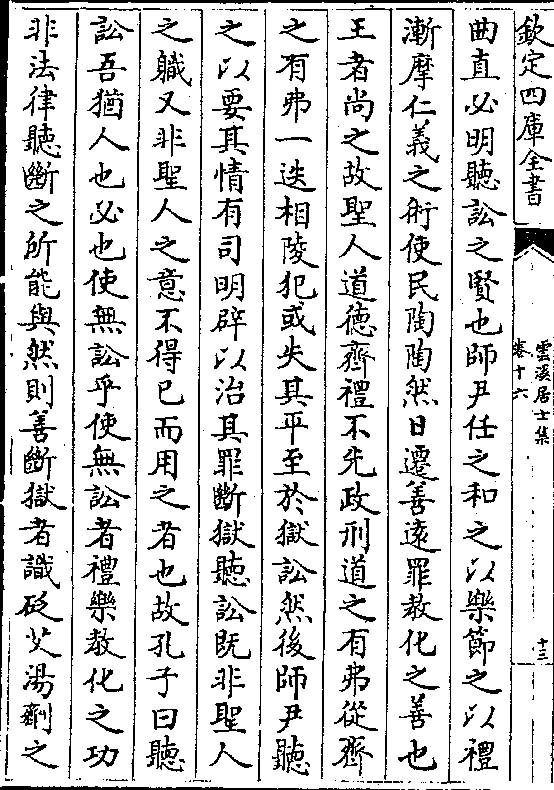 欽定四庫全書
雲溪居士集
卷十六
十三
曲直必明聽訟之賢也師尹任之和之以樂節之以禮
漸摩仁義之術使民陶陶然日遷善逺罪教化之善也
王者尚之故聖人道德齊禮不先政刑道之有弗從齊
之有弗一迭相陵犯或失其平至於獄訟然後師尹聽
之以要其情有司明辟以治其罪斷獄聽訟既非聖人
之職又非聖人之意不得已而用之者也故孔子曰聽
訟吾猶人也必也使無訟乎使無訟者禮樂教化之功
非法律聽斷之所能與然則善斷獄者識砭艾湯劑之